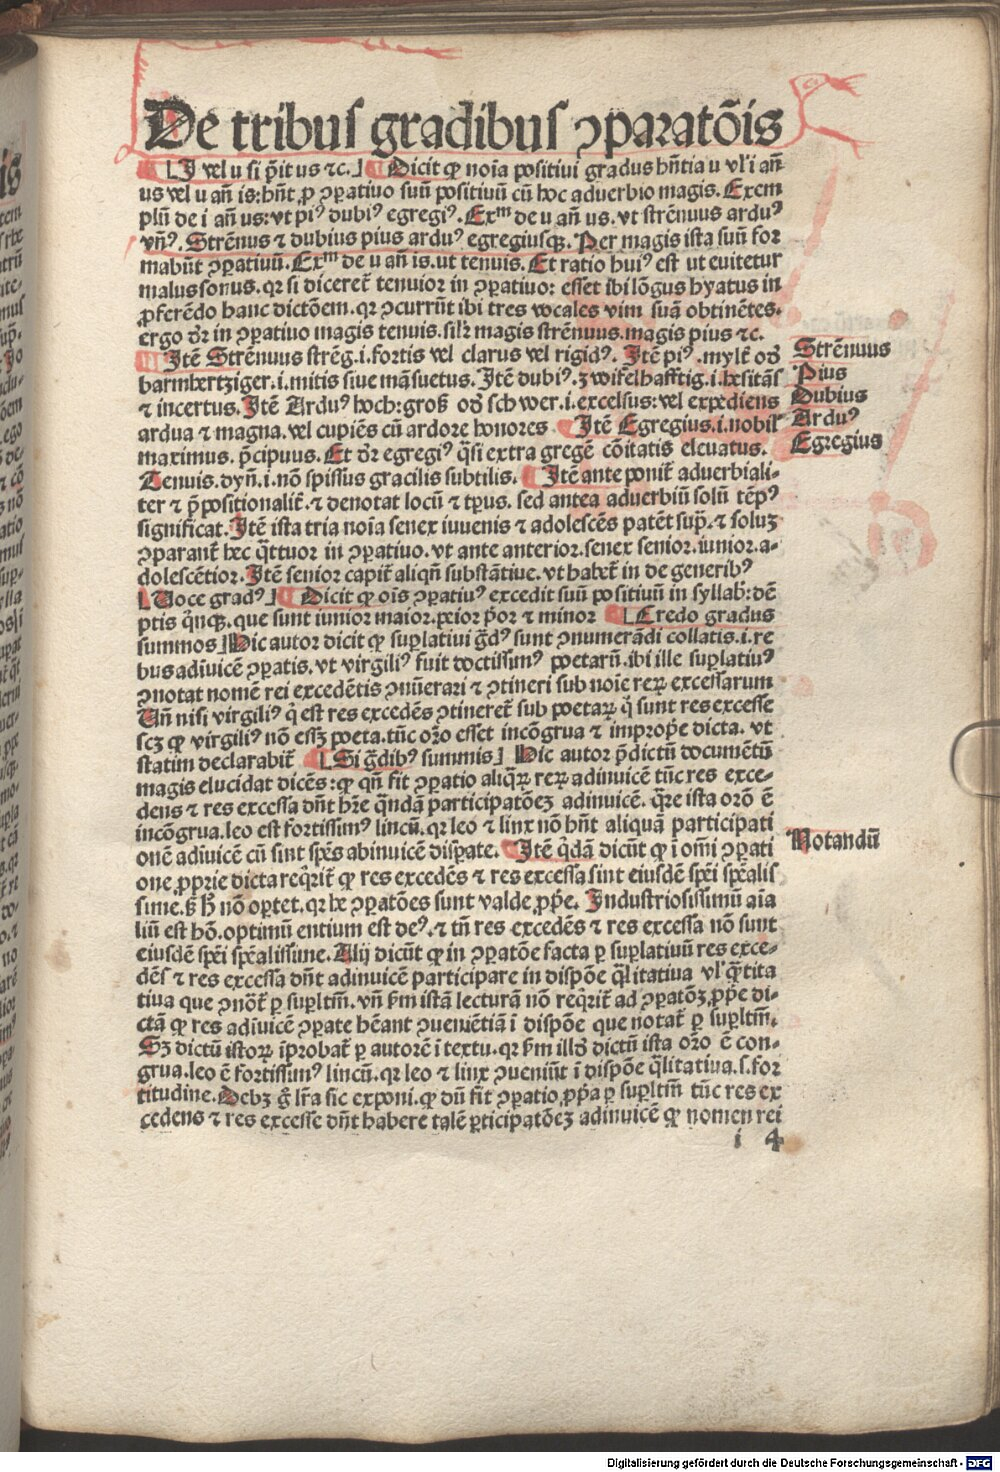 De tribus gradibus ꝯparatõis
⌊I vel u si p̃it us ⁊c.⌋ Dicit ꝙ noĩa positiui gradus hñtia u vl' i añ
us vel u añ is: hñt ꝓ ꝯpatiuo suũ positiuũ cũ hoc aduerbio magis. Exem
plũ de i añ us: vt piꝰ dubiꝰ egregiꝰ. Exᵐ de u añ us. vt strẽnuus arduꝰ
vñꝰ. Strẽnus ⁊ dubius pius arduꝰ egregiusqꝫ. Per magis ista suũ for
mabũt ꝯpatiuũ. Exᵐ de u añ is. ut tenuis. Et ratio huiꝰ est ut euitetur
malus sonus. qꝛ si diceret̃ tenuior in ꝯpatiuo: esset ibi lõgus hyatus in
ꝓferẽdo hanc dictõem. qꝛ ꝯcurrũt ibi tres vocales vim suã obtinẽtes.
ergo dꝛ̃ in ꝯpatiuo magis tenuis. silꝛ̃ magis strẽnuus. magis pius ⁊c.
Itẽ Strẽnuus strẽg .i. fortis vel clarus vel rigidꝰ. Itẽ piꝰ .mylt̃ od̃
barmhertziger .i. mitis siue mãsuetus. Itẽ dubiꝰ .ʒwifelhafftig .i. hesitãs
⁊ incertus. Itẽ Arduꝰ hoch: groß od̃ schwer .i. excelsus: vel expẽdiens
ardua ⁊ magna. vel cupiẽs cũ ardore honores Itẽ Egregius .i. nobil'
maximus. p̃cipuus. Et dꝛ̃ egregiꝰ q̃si extra gregẽ cõitatis eleuatus.
Tenuis. dyñ .i. nõ spissus gracilis subtilis. Itẽ ante ponit̃ aduerbiali-
ter ⁊ p̃positionalit̃. ⁊ denotat locũ ⁊ tp̃us. sed antea aduerbiũ solũ tẽpꝰ
significat. Itẽ ista tria noĩa senex iuuenis ⁊ adolescẽs patẽt sup̃. ⁊ soluʒ
ꝯparant̃ hec q̃ttuor in ꝯpatiuo. vt ante anterior. senex senior. iunior. a-
dolescẽtior. Itẽ senior capit̃ aliqñ substãtiue. vt habet̃ in de generibꝰ
⌊Uoce gradꝰ⌋ Dicit ꝙ oĩs ꝯpatiuꝰ excedit suũ positiuũ in syllab̃: dẽ
ptis q̃nqꝫ. que sunt iunior maior. pꝛior p̃or ⁊ minor ⌊Credo gradus
summos⌋ Hic autor dicit ꝙ suꝑlatiui g̃dꝰ sunt ꝯnumerãdi collatis .i. re
bus adiuicẽ ꝯpatis. vt virgiliꝰ fuit doctissimꝰ poetarũ. ibi ille suꝑlatiuꝰ
ꝯnotat nomẽ rei excedẽtis ꝯnũerari ⁊ ꝯtineri sub noĩe reꝝ excessarum
Uñ nisi virgiliꝰ q̃ est res excedẽs ꝯtineret̃ sub poetaꝝ q̃ sunt res excesse
scʒ ꝙ virgiliꝰ nõ essʒ poeta. tũc oꝛo esset incõgrua ⁊ improp̃e dicta. vt
statim declarabit̃ ⌊Si g̃dibꝰ summis⌋ Hic autor p̃dictũ documẽtũ
magis elucidat dicẽs: ꝙ qñ fit ꝯpatio aliqꝝ reꝝ adinuicẽ tũc res exce-
dens ⁊ res excessa dñt hr̃e q̃ndã participatõeʒ adinuicẽ. q̃re ista orõ ẽ
incõgrua. leo est fortissimꝰ lincũ. qꝛ leo ⁊ linx nõ hñt aliquã participati
onẽ adiuicẽ cũ sint sp̃es abinuicẽ disꝑate. Itẽ q̃dã dicũt ꝙ ĩ om̃i ꝯpati
one ꝓprie dicta req̃rit̃ ꝙ res excedẽs ⁊ res excessa sint eiusdẽ sp̃ei sp̃ealis
sime. s̃ h̃ nõ oꝑtet. qꝛ he ꝯpatões sunt valde ꝓp̃e. Industriosissimũ aĩa
liũ est hõ. optimũ entium est deꝰ. ⁊ tñ res excedẽs ⁊ res excessa nõ sunt
eiusdẽ sp̃ei sp̃ealissime. Alij dicũt ꝙ in ꝯpatõe facta ꝑ suꝑlatiuũ res exce-
dẽs ⁊ res excessa dñt adinuicẽ participare in dispõe q̃litatiua vl' q̃tita
tiua que ꝯnõt̃ ꝑ suꝑltm̃. vñ ẜm istã lecturã nõ req̃rit̃ ad ꝯpatõʒ ꝓp̃e di-
ctã ꝙ res adiuicẽ ꝯpate hẽant ꝯueniẽtiã ĩ dispõe que notat̃ ꝑ suꝑltm̃.
Sʒ dictũ istoꝝ ĩprobat̃ ꝑ autorẽ ĩ textu. qꝛ ẜm illd̃ dictũ ista oꝛo ẽ con-
grua. leo ẽ fortissimꝰ lincũ. qꝛ leo ⁊ linx ꝯueniũt ĩ dispõe q̃litatiua .s. for
titudine. Debʒ g̃ lr̃a sic exponi. ꝙ dũ fit ꝯpatio ꝓp̃a ꝑ suꝑltm̃ tũc res ex
cedens ⁊ res excesse dñt habere talẽ ꝑticipatõeʒ adinuicẽ ꝙ nomen rei
i 4
Strẽnuus
Pius
Dubius
Arduꝰ
Egregius
Notandũ
Digitalisierung gefördert durch die Deutsche Forschungsgemeinschaft - DFG